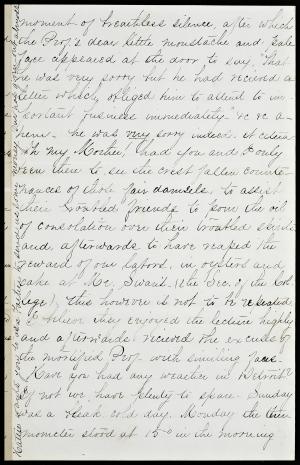 moment of breathless silence, after which
the Prof's dear little moustache and pale
face appeared at the door to say, "That
he was very sorry but he had recieved a
letter which obliged him to attend to im-
portant business immediately" &c &c a-
hem. he was very sorry indeed. et cetera
Oh my Mother! had you and I only
been there to see the crest fallen counte-
nances of those fair damsels, to assist
their troubled friends to pour the oil
of consolation over their troubled spirits
and, afterwards to have reaped the
reward of our labors, in oysters and
cake at Mr. Swaits, (the Sec. of the Col-
lege), This however is not to be repeated.
I believe they enjoyed the lecture highly
and afterwards recieved the excuses of
the mortified Prof. with smiling faces.
Have you had any weather in Detroit?
if not we have plenty to spare. Sunday
was a bleak cold day. Monday the ther-
mometer stood at 15° in the morning
Hattie